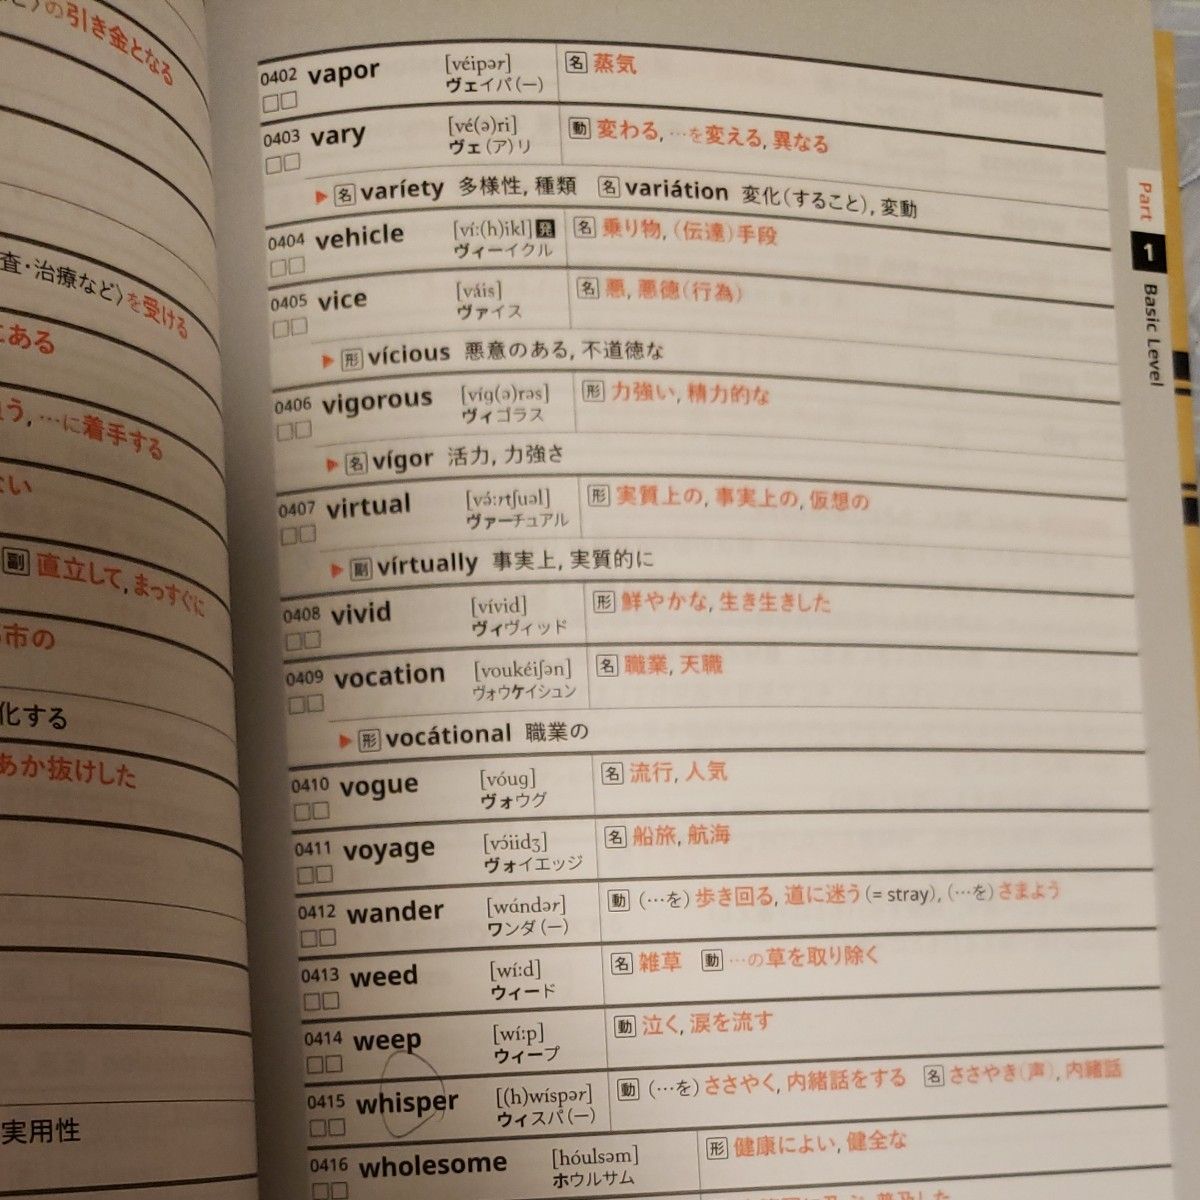 の引き金となる
査・治療など〉を受ける
ある
う, …に着手する
ない
副 直立して, まっすぐに
市の
化する
あか抜けした
実用性
0402 vapor [véipər] ヴェイパ(ー) 名 蒸気
0403 vary [vé(ə)ri] ヴェ(ア)リ 動 変わる, …を変える, 異なる
▶ 名 varíety 多様性, 種類 名 variátion 変化(すること), 変動
0404 vehicle [ví:(h)ikl] 発 ヴィーイクル 名 乗り物, (伝達)手段
0405 vice [váis] ヴァイス 名 悪, 悪徳(行為)
▶ 形 vícious 悪意のある, 不道徳な
0406 vigorous [víg(ə)rəs] ヴィゴラス 形 力強い, 精力的な
▶ 名 vígor 活力, 力強さ
0407 virtual [və́:rtʃuəl] ヴァーチュアル 形 実質上の, 事実上の, 仮想の
▶ 副 vírtually 事実上, 実質的に
0408 vivid [vívid] ヴィヴィッド 形 鮮やかな, 生き生きした
0409 vocation [voukéiʃən] ヴォウケイシュン 名 職業, 天職
▶ 形 vocátional 職業の
0410 vogue [vóug] ヴォウグ 名 流行, 人気
0411 voyage [vɔ́iidʒ] ヴォイエッジ 名 船旅, 航海
0412 wander [wɑ́ndər] ワンダ(ー) 動 (…を)歩き回る, 道に迷う(= stray), (…を)さまよう
0413 weed [wí:d] ウィード 名 雑草 動 …の草を取り除く
0414 weep [wí:p] ウィープ 動 泣く, 涙を流す
0415 whisper [(h)wíspər] ウィスパ(ー) 動 (…を)ささやく, 内緒話をする 名 ささやき(声), 内緒話
0416 wholesome [hóulsəm] ホウルサム 形 健康によい, 健全な
Part 1 Basic Level